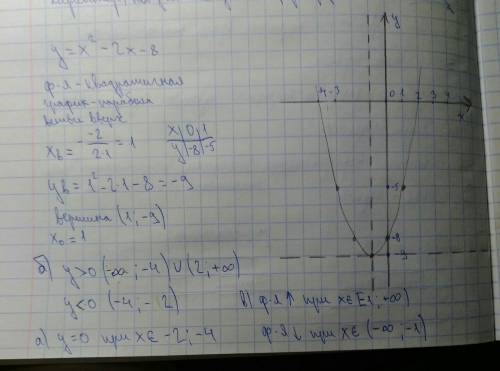 y=x²-2x-8
ф-я-квадратичная
график-парабола
ветви вверх
x_B = -\frac{-2}{2·1} = 1
x|0|1
y|-8|-5
y_B = 1²-2·1-8 = -9
вершина (1;-9)
x₀=1
б) y>0 (-∞;-4)∪(2;+∞)
y<0 (-4;-2)
в) ф-я↑ при x∈[-1;+∞)
а) y=0 при x∈ -2;-4
ф-я↓ при x∈(-∞;-1)
y
-4 -3 0 1 2 3 4 x
-5
-8
-9